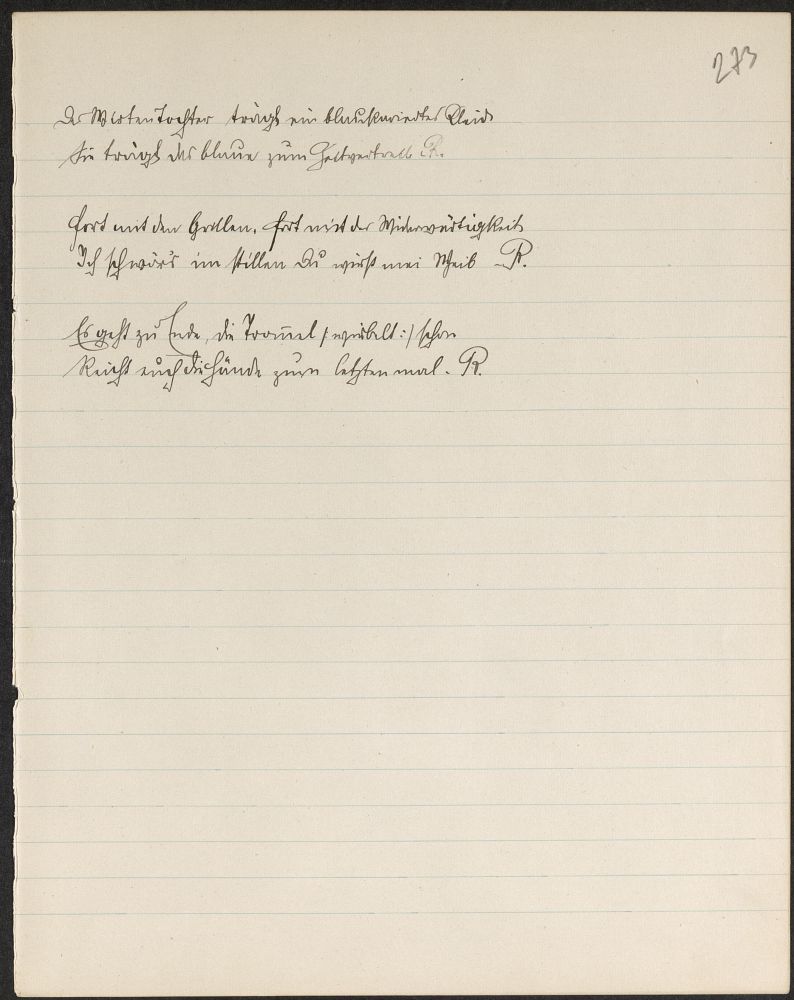 273
Der Wirten Tochter trägt ein blaukariertes Kleid
Sie trägt das blaue zum Zeitvertreib R.
Fort mit den Grillen, fort mit der Widerwärtigkeit
Ich schwör's im stillen Du wirst mei Weib R.
Es geht zu Ende, die Trommel /: wirbelt :/ schon
Reicht euch die Hände zum letzten mal. R.